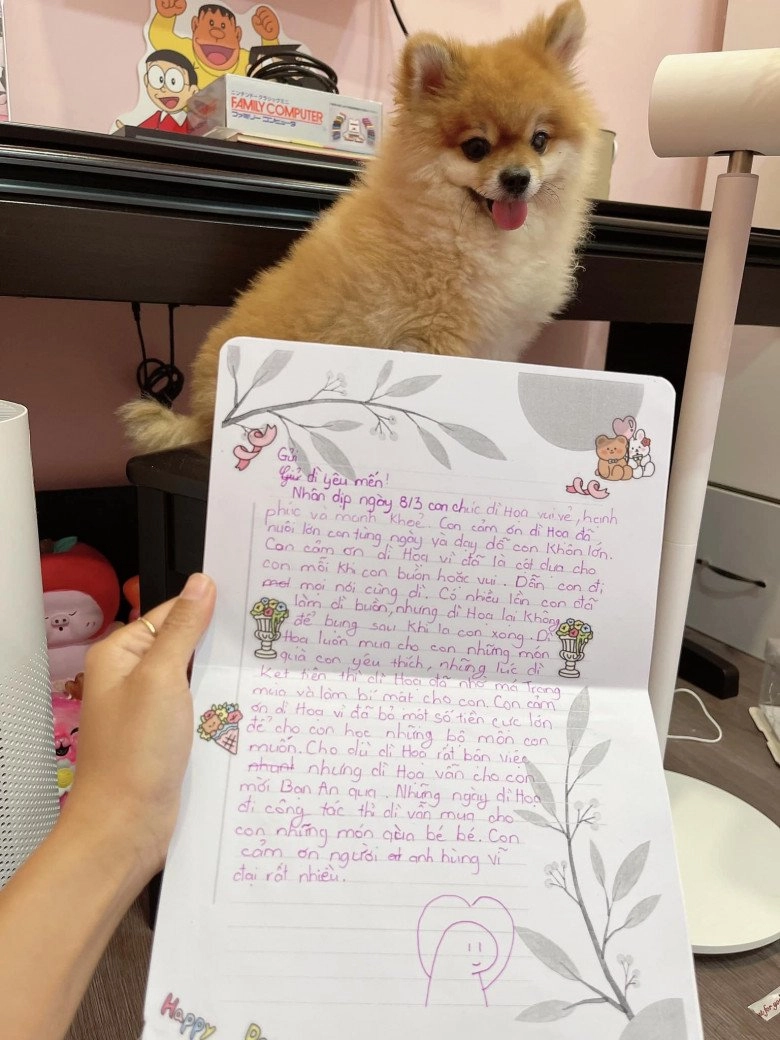 ニンテンドークラシックミニ
FAMILY COMPUTER
ファミリーコンピュータ
Gửi
Giử dì yêu mến!
Nhân dịp ngày 8/3 con chúc dì Hoa vui vẻ, hạnh
phúc và mạnh khoẻ. Con cảm ơn dì Hoa đã
nuôi lớn con từng ngày và dạy dỗ con khôn lớn.
Con cảm ơn dì Hoa vì đã là cột dựa cho
con mỗi khi con buồn hoặc vui. Dẫn con đi
mọi nơi cùng dì. Có nhiều lần con đã
làm dì buồn, nhưng dì Hoa lại không
để bụng sau khi la con xong. Dì
Hoa luôn mua cho con những món
quà con yêu thích, những lúc dì
kẹt tiền thì dì Hoa đã nhờ má Trang
mua và làm bí mật cho con. Con cảm
ơn dì Hoa vì đã bỏ một số tiền cực lớn
để cho con học những bộ môn con
muốn. Cho dù dì Hoa rất bận việc
nhưng dì Hoa vẫn cho con
mời Bạn An qua. Những ngày dì Hoa
đi công tác thì dì vẫn mua cho
con những món qùa bé bé. Con
cảm ơn người anh hùng vĩ
đại rất nhiều.
Happy